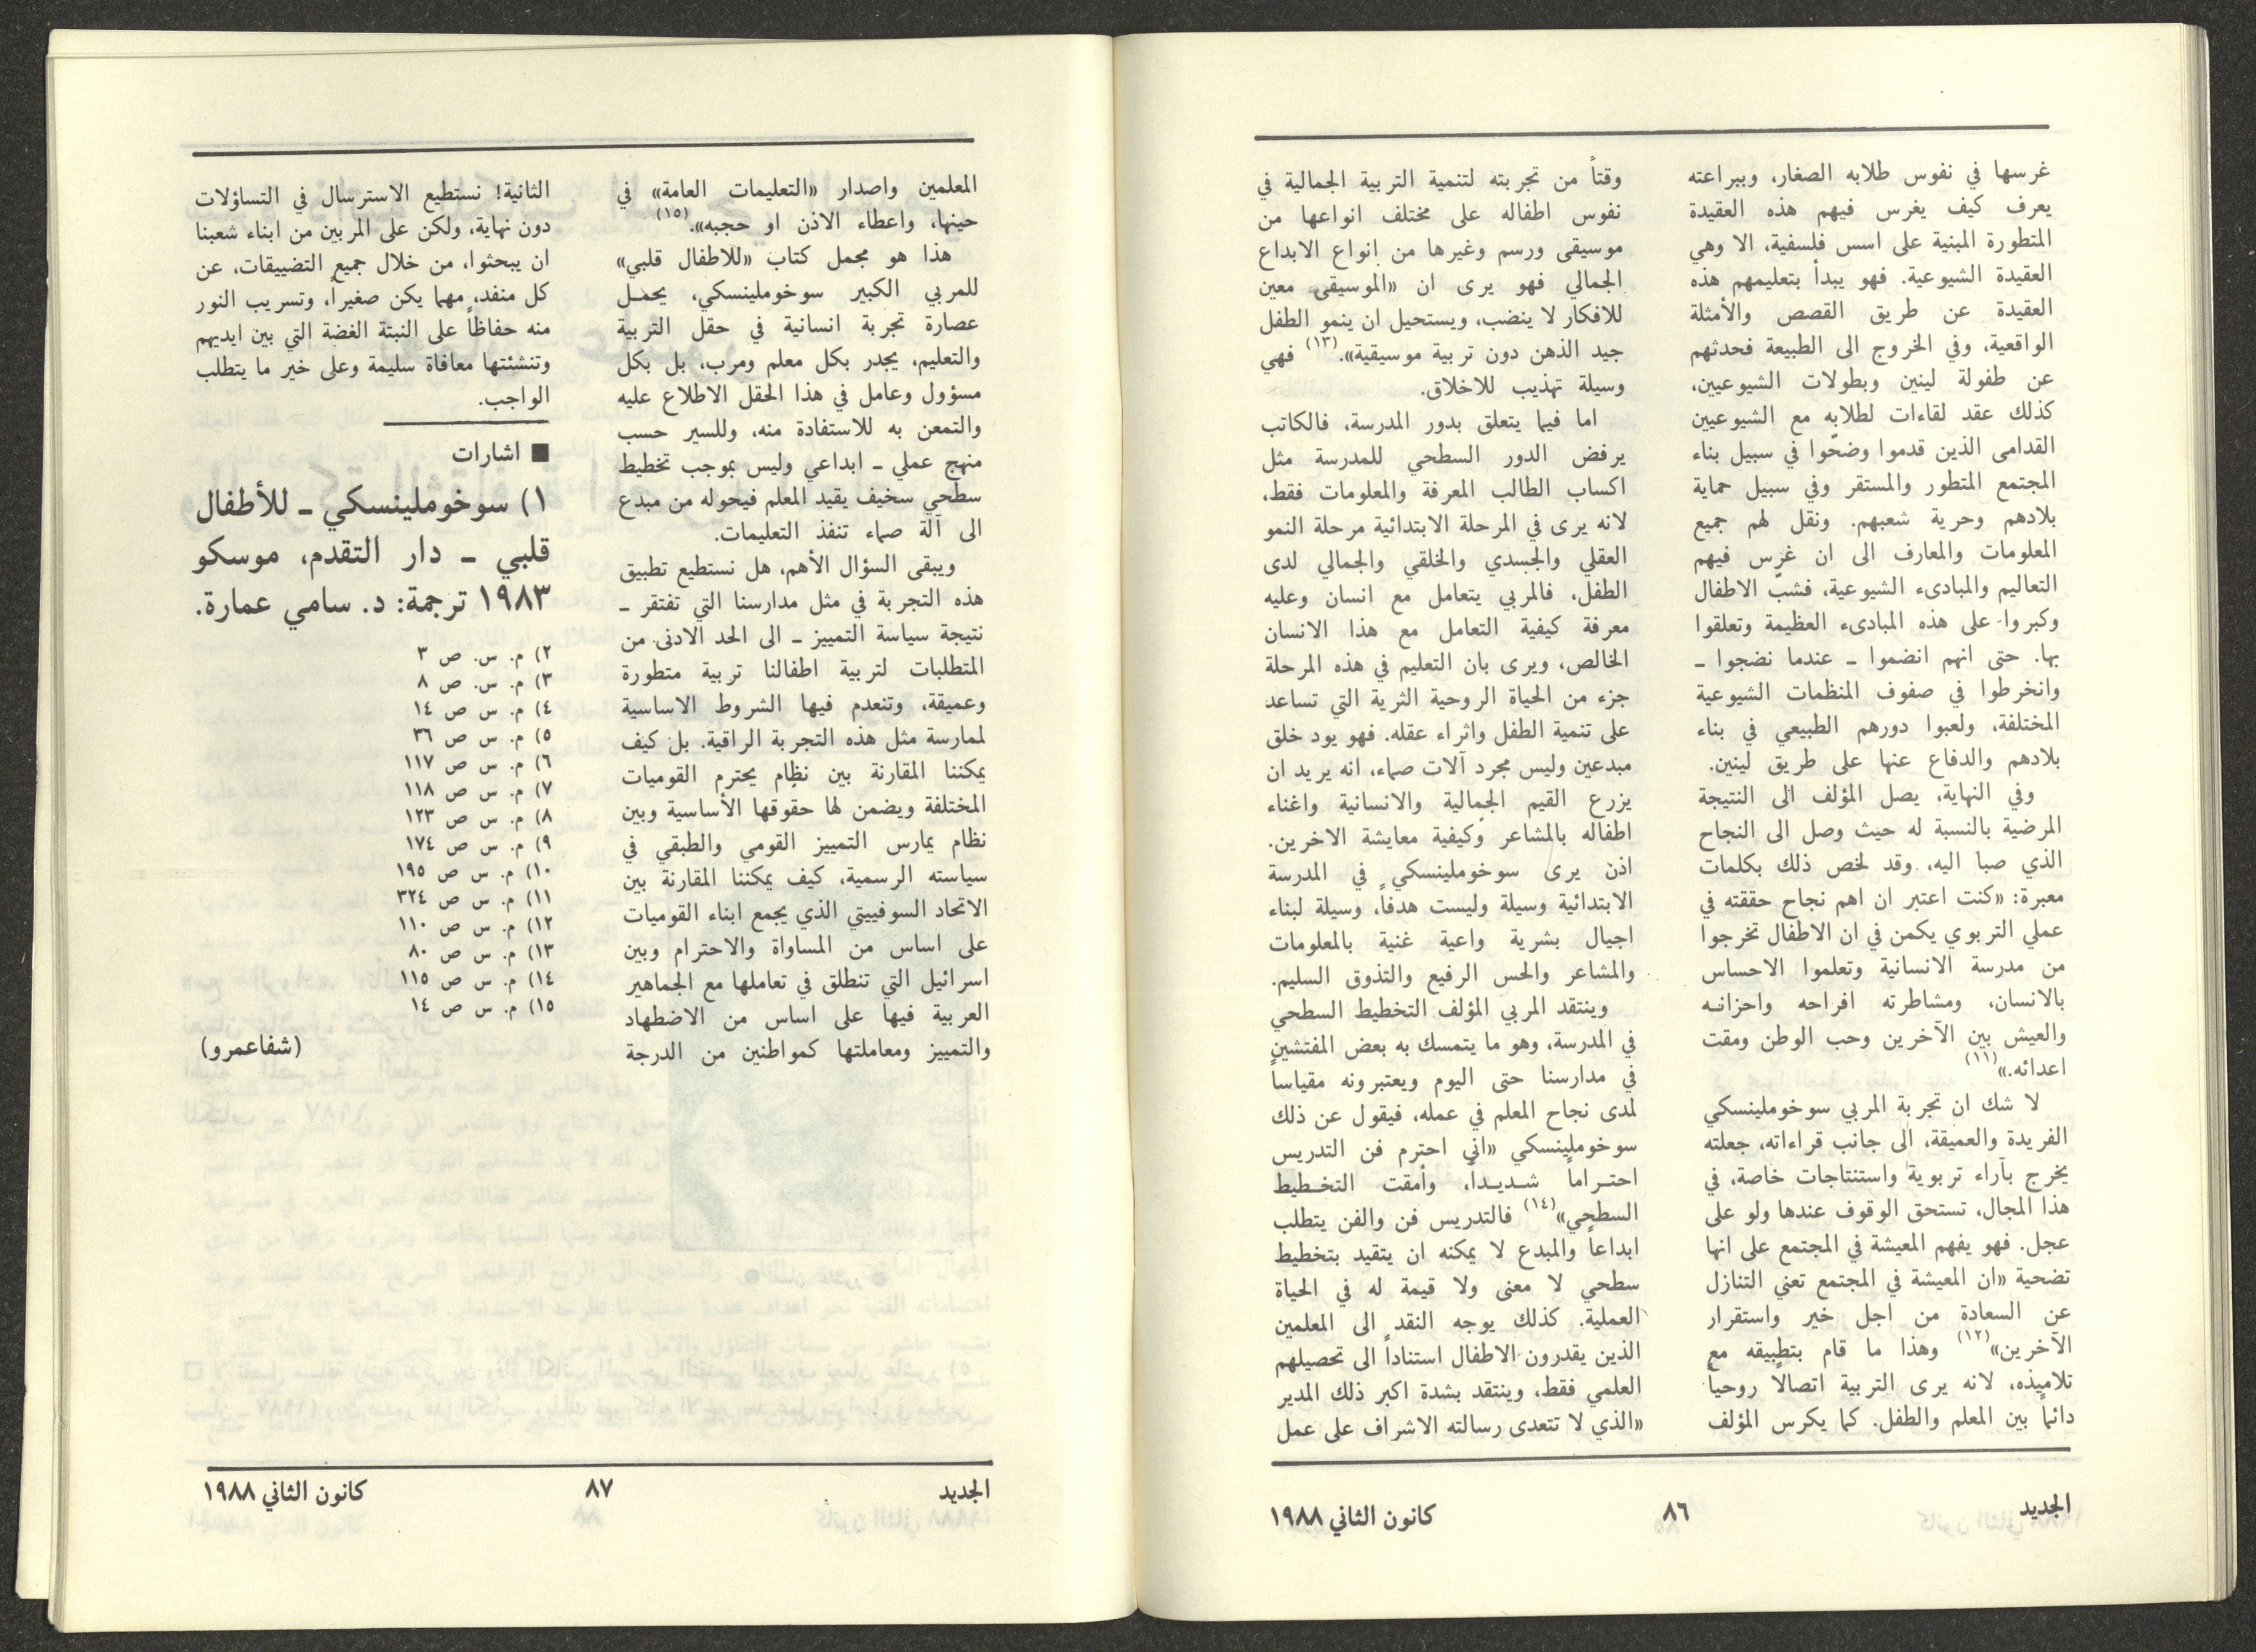 غرسها في نفوس طلابه الصغار، وببراعته
يعرف كيف يغرس فيهم هذه العقيدة
المتطورة المبنية على اسس فلسفية، الا وهي
العقيدة الشيوعية. فهو يبدأ بتعليمهم هذه
العقيدة عن طريق القصص والأمثلة
الواقعية، وفي الخروج الى الطبيعة فحدثهم
عن طفولة لينين وبطولات الشيوعيين،
كذلك عقد لقاءات لطلابه مع الشيوعيين
القدامى الذين قدموا وضحّوا في سبيل بناء
المجتمع المتطور والمستقر وفي سبيل حماية
بلادهم وحرية شعبهم. ونقل لهم جميع
المعلومات والمعارف الى ان غرّس فيهم
التعاليم والمبادىء الشيوعية، فشبّ الاطفال
وكبروا على هذه المبادىء العظيمة وتعلقوا
بها. حتى انهم انضموا ـ عندما نضجوا ـ
وانخرطوا في صفوف المنظمات الشيوعية
المختلفة، ولعبوا دورهم الطبيعي في بناء
بلادهم والدفاع عنها على طريق لينين.
وفي النهاية، يصل المؤلف الى النتيجة
المرضية بالنسبة له حيث وصل الى النجاح
الذي صبا اليه، وقد لخص ذلك بكلمات
معبرة: «كنت اعتبر ان اهم نجاح حققته في
عملي التربوي يكمن في ان الاطفال تخرجوا
من مدرسة الانسانية وتعلموا الاحساس
بالانسان، ومشاطرته افراحه واحزانه
والعيش بين الآخرين وحب الوطن ومقت
اعدائه.»(١١)
لا شك ان تجربة المربي سوخوملينسكي
الفريدة والعميقة، الى جانب قراءاته، جعلته
يخرج بآراء تربوية واستنتاجات خاصة، في
هذا المجال، تستحق الوقوف عندها ولو على
عجل. فهو يفهم المعيشة في المجتمع على انها
تضحية «ان المعيشة في المجتمع تعني التنازل
عن السعادة من اجل خير واستقرار
الآخرين»(١٢) وهذا ما قام بتطبيقه مع
تلاميذه، لانه يرى التربية اتصالاً روحياً
دائماً بين المعلم والطفل. كما يكرس المؤلف
وقتاً من تجربته لتنمية التربية الجمالية في
نفوس اطفاله على مختلف انواعها من
موسيقى ورسم وغيرها من انواع الابداع
الجمالي فهو يرى ان «الموسيقى معين
للافكار لا ينضب، ويستحيل ان ينمو الطفل
جيد الذهن دون تربية موسيقية».(١٣) فهي
وسيلة تهذيب للاخلاق.
اما فيما يتعلق بدور المدرسة، فالكاتب
يرفض الدور السطحي للمدرسة مثل
اكساب الطالب المعرفة والمعلومات فقط،
لانه يرى في المرحلة الابتدائية مرحلة النمو
العقلي والجسدي والخلقي والجمالي لدى
الطفل، فالمربي يتعامل مع انسان وعليه
معرفة كيفية التعامل مع هذا الانسان
الخالص، ويرى بان التعليم في هذه المرحلة
جزء من الحياة الروحية الثرية التي تساعد
على تنمية الطفل واثراء عقله. فهو يود خلق
مبدعين وليس مجرد آلات صماء، انه يريد ان
يزرع القيم الجمالية والانسانية واغناء
اطفاله بالمشاعر وكيفية معايشة الاخرين.
اذن يرى سوخوملينسكي في المدرسة
الابتدائية وسيلة وليست هدفاً، وسيلة لبناء
اجيال بشرية واعية غنية بالمعلومات
والمشاعر والحس الرفيع والتذوق السليم.
وينتقد المربي المؤلف التخطيط السطحي
في المدرسة، وهو ما يتمسك به بعض المفتشين
في مدارسنا حتى اليوم ويعتبرونه مقياساً
لمدى نجاح المعلم في عمله، فيقول عن ذلك
سوخوملينسكي «اني احترم فن التدريس
احتراماً شديداً، وأمقت التخطيط
السطحي»(١٤) فالتدريس فن والفن يتطلب
ابداعاً والمبدع لا يمكنه ان يتقيد بتخطيط
سطحي لا معنى ولا قيمة له في الحياة
العملية. كذلك يوجه النقد الى المعلمين
الذين يقدرون الاطفال استناداً الى تحصيلهم
العلمي فقط، وينتقد بشدة اكبر ذلك المدير
«الذي لا تتعدى رسالته الاشراف على عمل
الجديد
٨٦
كانون الثاني ١٩٨٨
المعلمين واصدار «التعليمات العامة» في
حينها، واعطاء الاذن او حجبه».(١٥)
هذا هو مجمل كتاب «للاطفال قلبي»
للمربي الكبير سوخوملينسكي، يحمل
عصارة تجربة انسانية في حقل التربية
والتعليم، يجدر بكل معلم ومرب، بل بكل
مسؤول وعامل في هذا الحقل الاطلاع عليه
والتمعن به للاستفادة منه، وللسير حسب
منهج عملي ـ ابداعي وليس بموجب تخطيط
سطحي سخيف يقيد المعلم فيحوله من مبدع
الى آلة صماء تنفذ التعليمات.
ويبقى السؤال الأهم، هل نستطيع تطبيق
هذه التجربة في مثل مدارسنا التي تفتقر ـ
نتيجة سياسة التمييز ـ الى الحد الادنى من
المتطلبات لتربية اطفالنا تربية متطورة
وعميقة، وتنعدم فيها الشروط الاساسية
لممارسة مثل هذه التجربة الراقية. بل كيف
يمكننا المقارنة بين نظام يحترم القوميات
المختلفة ويضمن لها حقوقها الأساسية وبين
نظام يمارس التمييز القومي والطبقي في
سياسته الرسمية، كيف يمكننا المقارنة بين
الاتحاد السوفييتي الذي يجمع ابناء القوميات
على اساس من المساواة والاحترام وبين
اسرائيل التي تنطلق في تعاملها مع الجماهير
العربية فيها على اساس من الاضطهاد
والتمييز ومعاملتها كمواطنين من الدرجة
الثانية! نستطيع الاسترسال في التساؤلات
دون نهاية، ولكن على المربين من ابناء شعبنا
ان يبحثوا، من خلال جميع التضييقات، عن
كل منفد، مهما يكن صغيراً، وتسريب النور
منه حفاظاً على النبتة الغضة التي بين ايديهم
وتنشئتها معافاة سليمة وعلى خير ما يتطلب
الواجب.
■ اشارات
١) سوخوملينسكي ـ للأطفال
قلبي ـ دار التقدم، موسكو
١٩٨٣ ترجمة: د. سامي عمارة.
٢) م. س. ص ٣
٣) م. س. ص ٨
٤) م. س ص ١٤
٥) م. س ص ٣٦
٦) م. س ص ١١٧
٧) م. س ص ١١٨
٨) م. س ص ١٢٣
٩) م. س ص ١٧٤
١٠) م. س ص ١٩٥
١١) م. س ص ٣٢٤
١٢) م. س ص ١١٠
١٣) م. س ص ٨٠
١٤) م. س ص ١١٥
١٥) م. س ص ١٤
(شفاعمرو)
الجديد
٨٧
كانون الثاني ١٩٨٨